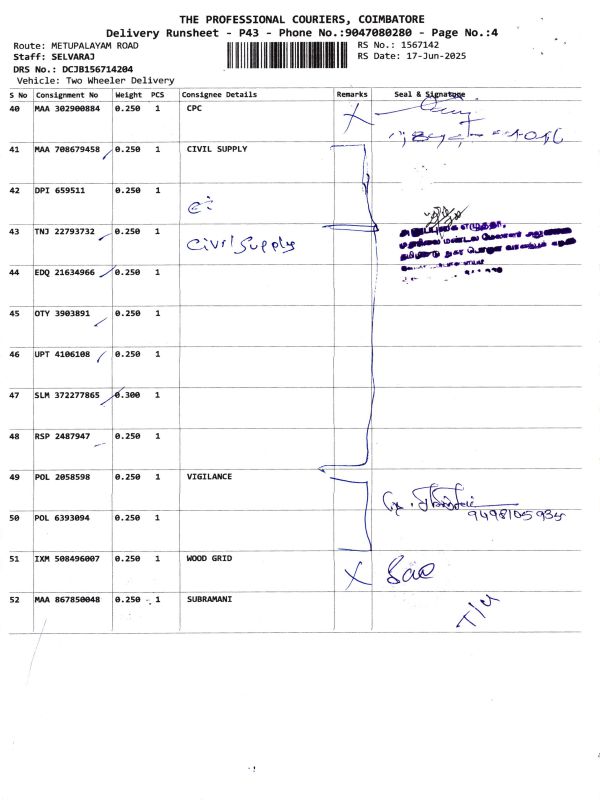 THE PROFESSIONAL COURIERS, COIMBATORE
Delivery Runsheet - P43 - Phone No.:9047080280 - Page No.:4
Route: METUPALAYAM ROAD
RS No.: 1567142
Staff: SELVARAJ
RS Date: 17-Jun-2025
DRS No.: DCJB156714204
Vehicle: Two Wheeler Delivery
S No Consignment No Weight PCS Consignee Details Remarks Seal & Signature
40 MAA 302900884 0.250 1 CPC
41 MAA 708679458 0.250 1 CIVIL SUPPLY
42 DPI 659511 0.250 1
43 TNJ 22793732 0.250 1 Civil Supply
44 EDQ 21634966 0.250 1
45 OTY 3903891 0.250 1
46 UPT 4106108 0.250 1
47 SLM 372277865 0.300 1
48 RSP 2487947 0.250 1
49 POL 2058598 0.250 1 VIGILANCE
50 POL 6393094 0.250 1
51 IXM 508496007 0.250 1 WOOD GRID
52 MAA 867850048 0.250 1 SUBRAMANI